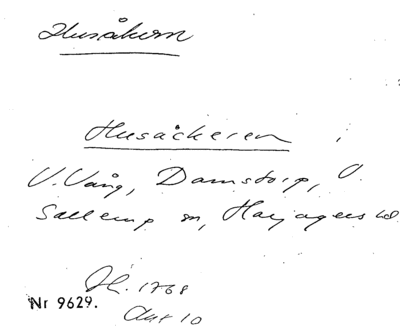 Husåkern
Husåckeren i
V. Vång, Damstorp, Ö.
Sallerup sn, Harjagers hd.
Jh. 1768
Nr 9629.
Akt 10